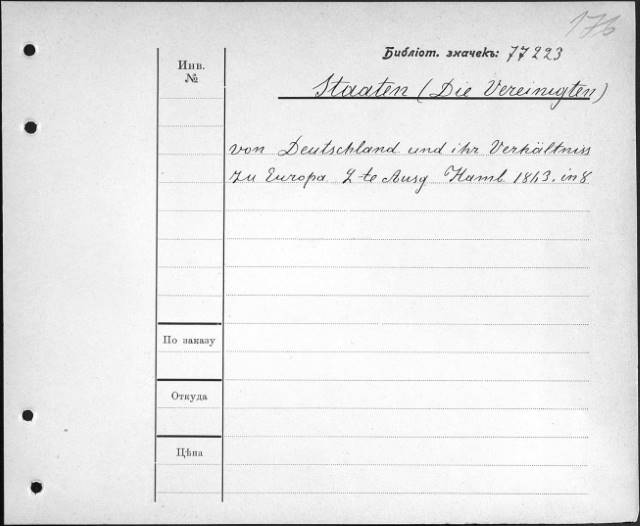 176
Библіот. значекъ: 77223
Инв.
№
Staaten (Die Vereinigten)
von Deutschland und ihr Verhältniss
zu Europa 2-te Ausg Hamb 1843. in 8
По заказу
Откуда
Цѣна